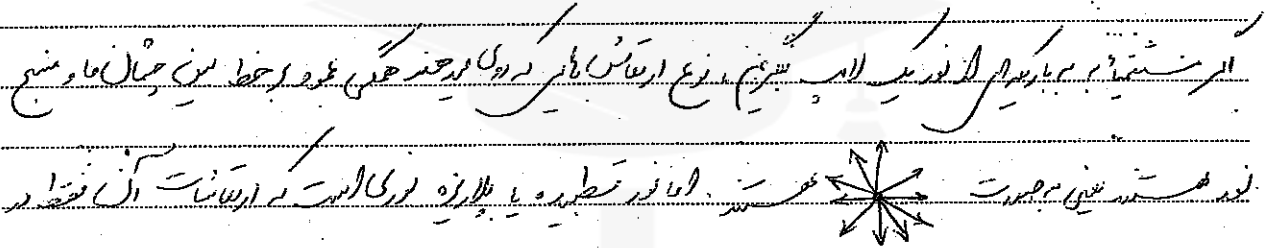 اگر مستقیماً به باریکه‌ای از نور یک لامپ بنگریم، نوع ارتعاش‌هایی که روی می‌دهند همگی عمود بر خط بین چشمان ما و منبع
نور هستند یعنی به صورت هستند. اما نور قطبیده یا پلاریزه نوری است که ارتعاشات آن فقط در